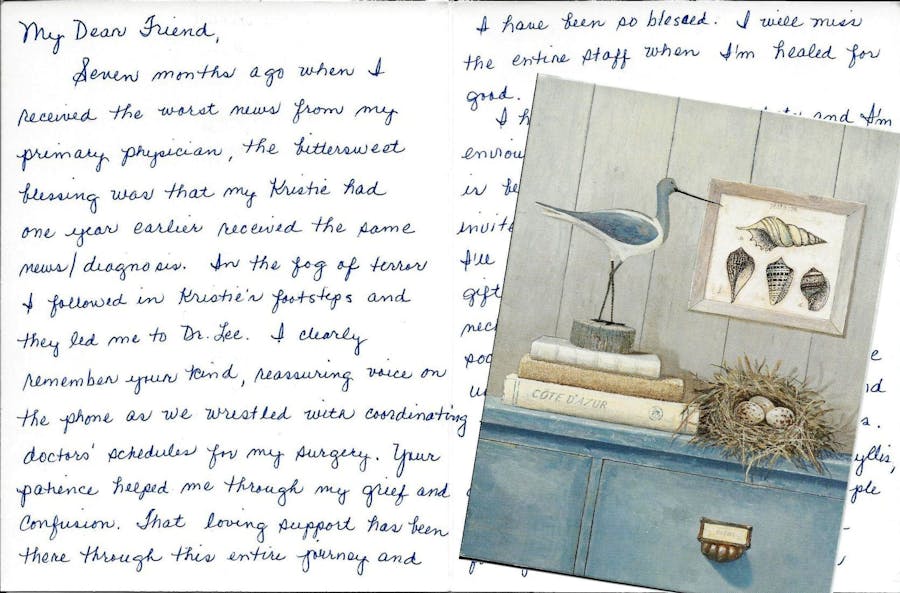 My Dear Friend,
Seven months ago when I
received the worst news from my
primary physician, the bittersweet
blessing was that my Kristie had
one year earlier received the same
news/diagnosis. In the fog of terror
I followed in Kristie's footsteps and
they led me to Dr. Lee. I clearly
remember your kind, reassuring voice on
the phone as we wrestled with coordinating
doctors' schedules for my surgery. Your
patience helped me through my grief and
confusion. That loving support has been
there through this entire journey and
I have been so blessed. I will miss
the entire staff when I'm healed for
good.
and I'm
I'll
CÔTE D'AZUR